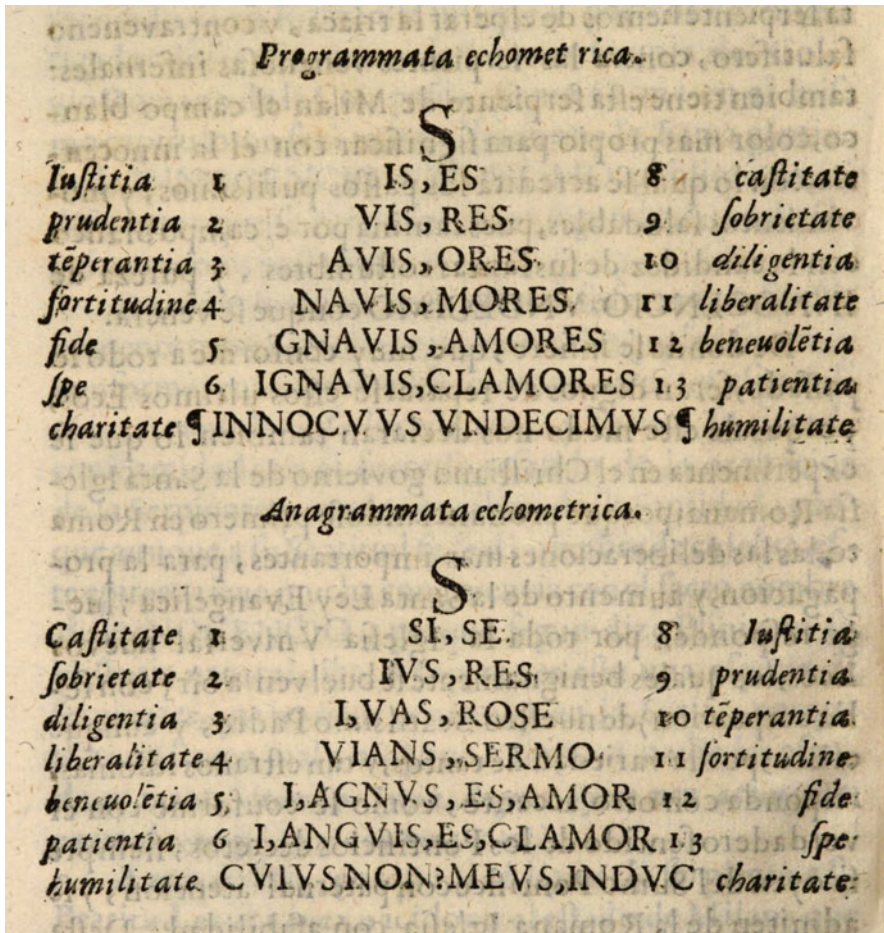 Programmata echomet rica.
S
Iuſtitia 1 IS, ES 8 caſtitate
prudentia 2 VIS, RES 9 ſobrietate
tẽperantia 3 AVIS, ORES 10 diligentia
fortitudine 4 NAVIS, MORES. 11 liberalitate
fide 5 GNAVIS, AMORES 12 beneuolẽtia
ſpe 6 IGNAVIS, CLAMORES 13 patientia
charitate ¶ INNOCVVS VNDECIMVS ¶ humilitate
Anagrammata echometrica.
S
Caſtitate 1 SI, SE. 8 Iuſtitia
ſobrietate 2 IVS, RES 9 prudentia
diligentia 3 I, VAS, ROSE 10 tẽperantia.
liberalitate 4 VIANS, SERMO 11 fortitudine
beneuolẽtia 5 I, AGNVS, ES, AMOR 12 fide
patientia 6 I, ANGVIS, ES, CLAMOR 13 ſpe
humilitate CVIVS NON? MEVS, INDVC charitate